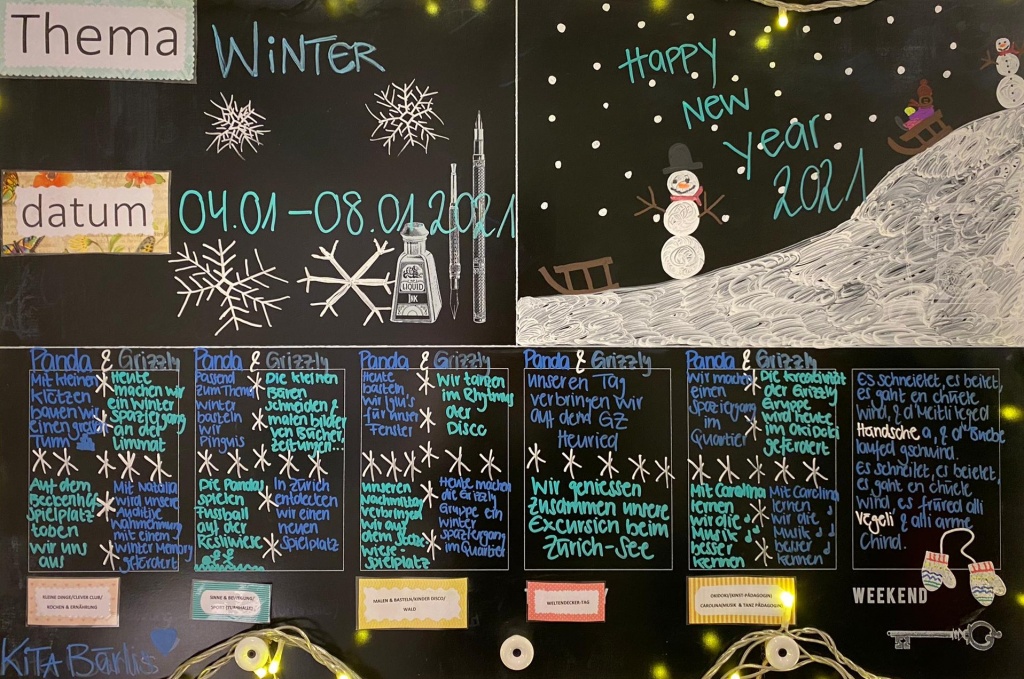 Thema
WINTER
datum
04.01 – 08.01.2021
LIQUID
INK
Happy
New
year
2021
Panda & Grizzly
Mit kleinen
klötzen
bauen wir
einen
Turm
Heute
machen wir
ein winter
spaziergang
an der
Limmat
Auf dem
spielplatz
toben
wir uns
aus
Mit Natalia
wird unsere
auditive
wahrnehmung
mit einem
winter Memory
gefördert
Panda & Grizzly
Passend
zum Thema
winter
basteln
wir
Pinguis
Die kleinen
Bären
schneiden &
malen bilder
von Bücher,
zeitungen...
Die Pandas
spielen
Fussball
auf der
In Zürich
entdecken
wir einen
neuen
Spielplatz
Panda & Grizzly
Heute
basteln
wir Iglu's
für unser
Fenster
Wir tanzen
im Rhythmus
der
Disco
unseren
Nachmittag
verbringen
wir auf
dem
wiese-
spielplatz
Heute machen
die Grizzly
Gruppe ein
winter
spaziergang
im Quartier
Panda & Grizzly
unseren Tag
verbringen wir
auf dem GZ
Heuried
Wir geniessen
zusammen unsere
Excursion beim
Zürich-See
Panda & Grizzly
wir machen
einen
Spaziergang
im
Quartier
Die kreativität
der Grizzly
Gruppe
wird heute
im Okidoki
gefördert
Mit Carolina
lernen
wir die
Musik
besser
kennen
Mit Carolina
lernen
wir die
Musik
besser
kennen
Es schneielet, es beilet,
es gaht en chüele
wind, & d'Meitli leged
Händsche a, & d'Buebe
laufed gschwind.
Es schneielet, es beielet,
es gaht en chüele
wind, es früred alli
Vegeli & alli arme
Chind.
KLEINE DINGE/CLEVER CLUB/
KOCHEN & ERNÄHRUNG
SINNE & BEWEGUNG/
SPORT (TURNHALLE)
MALEN & BASTELN/KINDER DISCO/
WALD
WELTENDECKER-TAG
OKIDOKI/(KUNST-PÄDAGOGIN)
CAROLINA/MUSIK & TANZ PÄDAGOGIN)
WEEKEND
KITA Bärlis